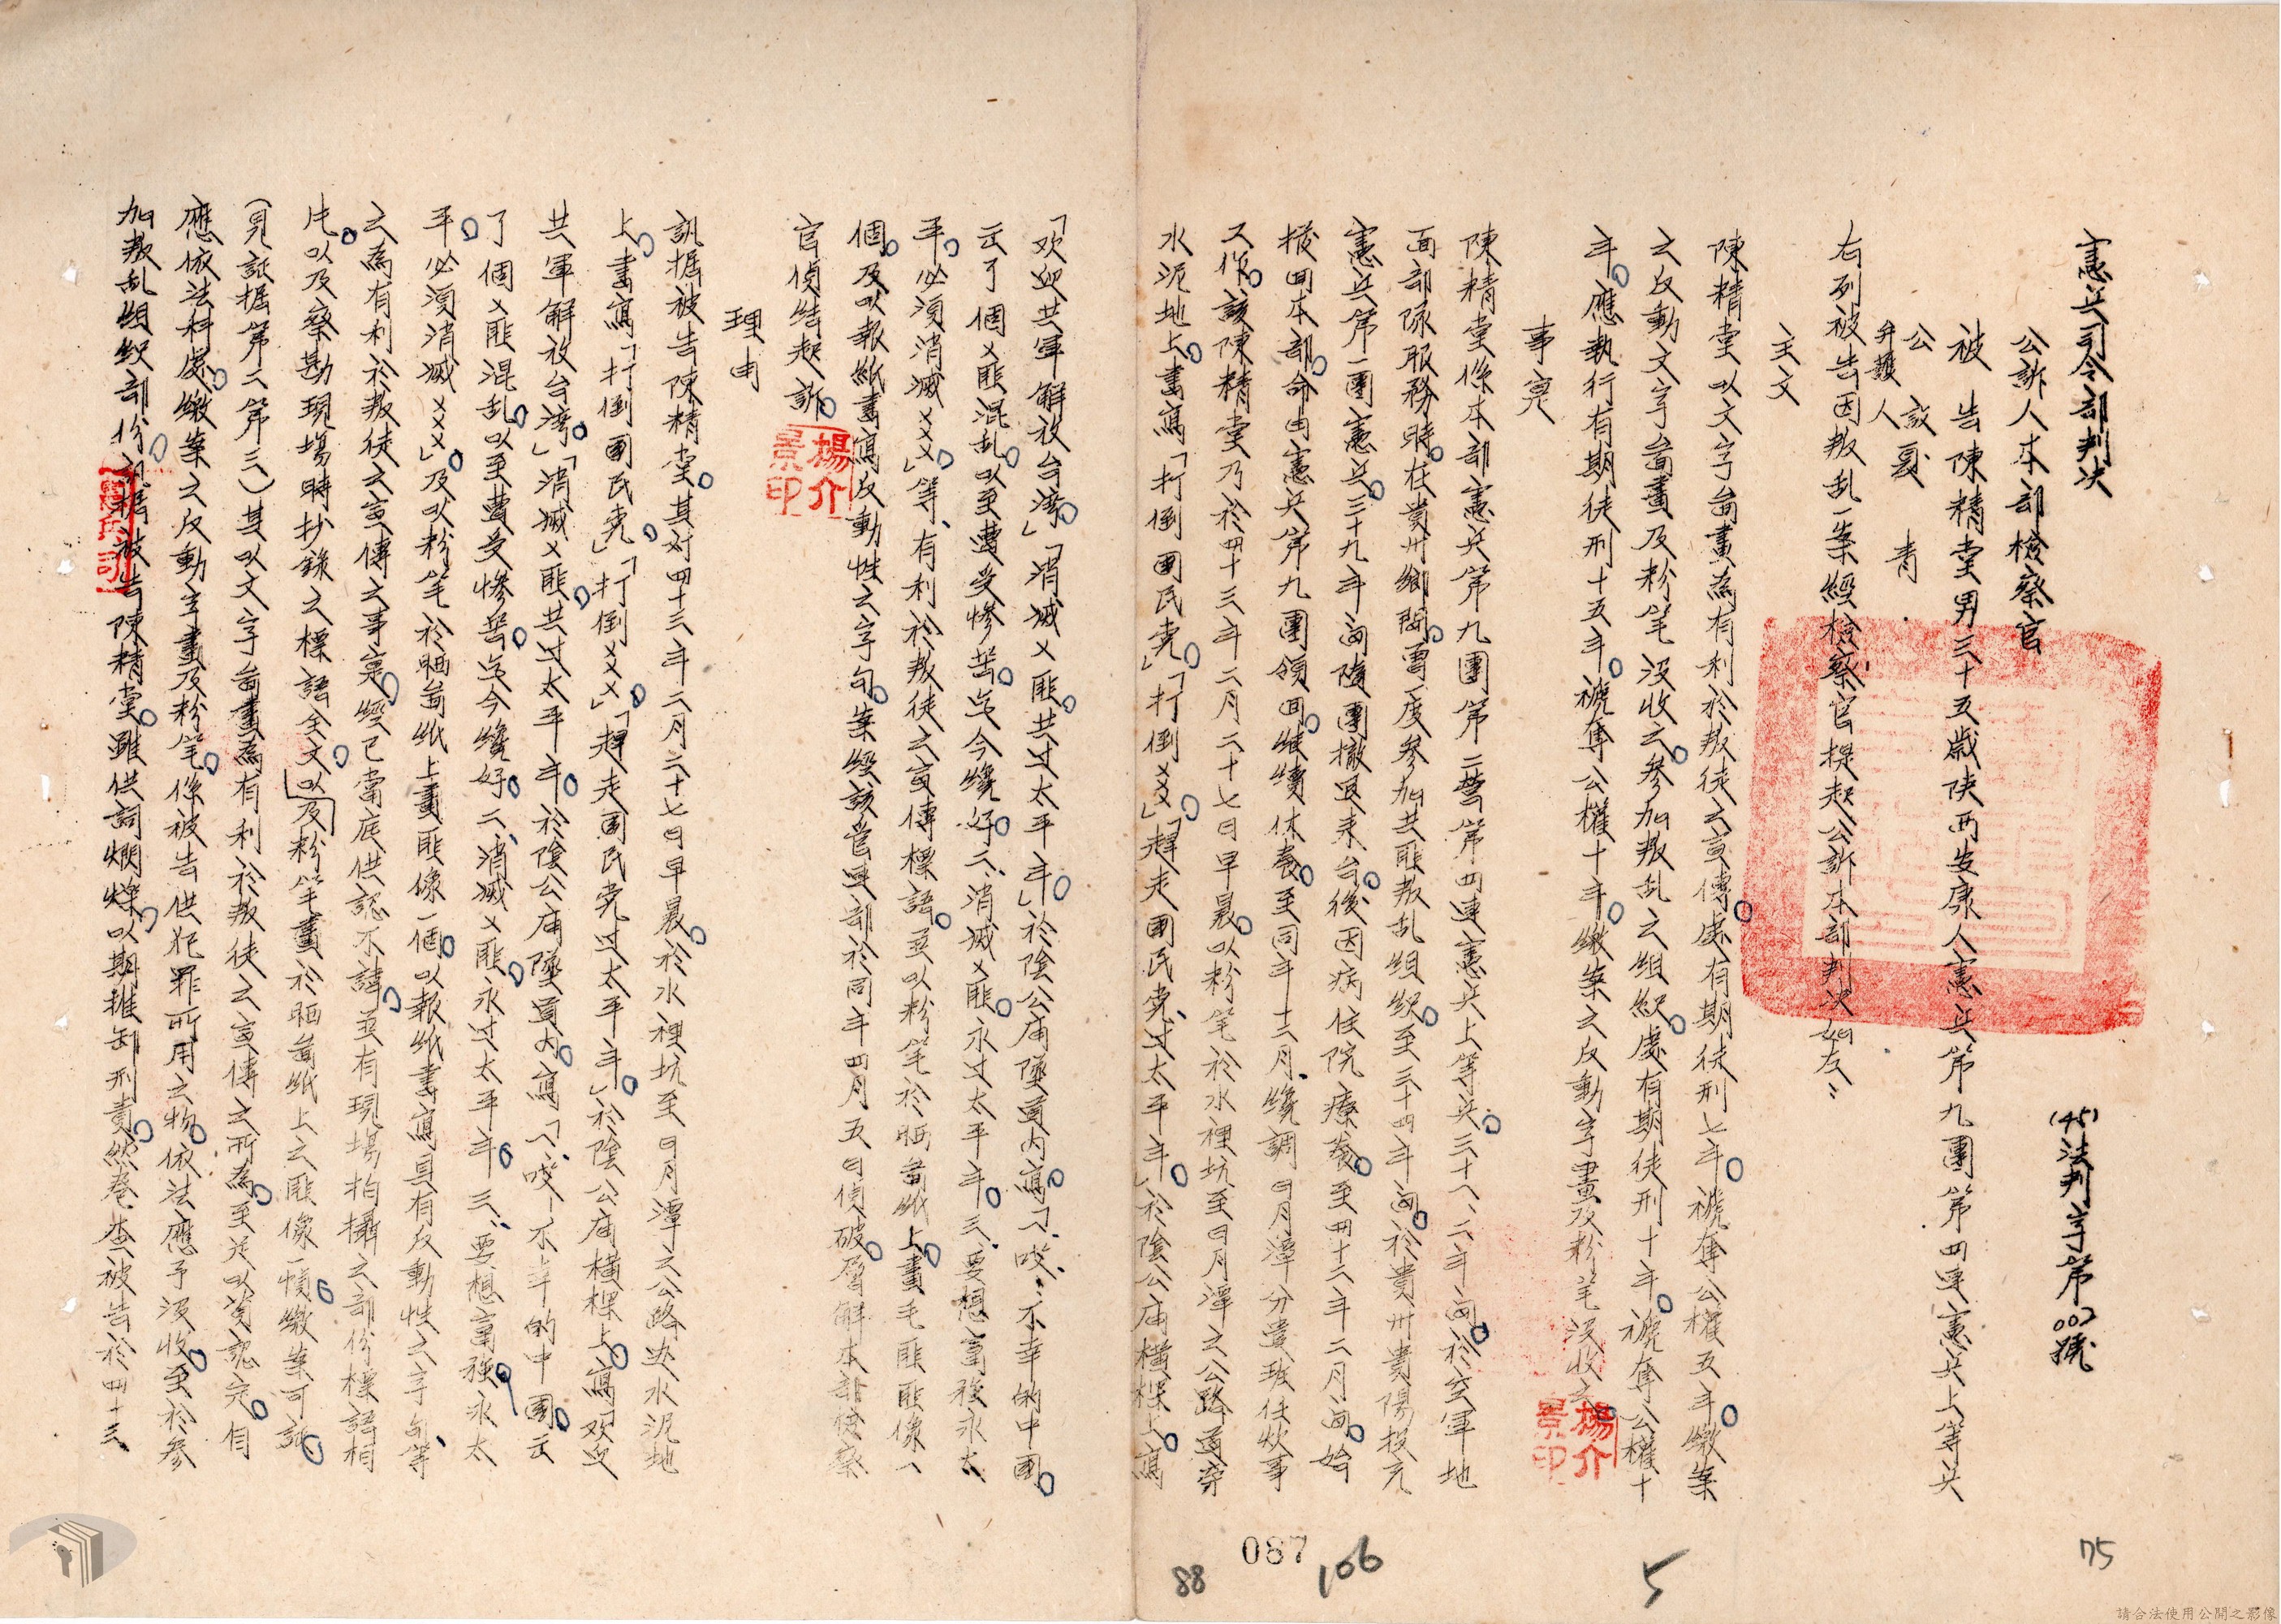 憲兵司令部判決
(45)法判字第007號
公訴人本部檢察官
被告陳精堂男三十五歲陝西安康人憲兵第九團第四連憲兵上等兵
公設
弁護人
夏青
右列被告因叛乱一案經檢察官提起公訴本部判決如左：
主文
陳精堂以文字啚畫為有利於叛徒之宣傳處有期徒刑七年褫奪公權五年繳案
之反動文字啚畫及粉笔沒收之參加叛乱之組織處有期徒刑十年褫奪公權十
年應執行有期徒刑十五年褫奪公權十年繳案之反動字畫及粉笔沒收之
事實
陳精堂係本部憲兵第九團第二營第四連憲兵上等兵三十八、二年間於空軍地
面部隊服務時在貴州鄉間曾一度參加共匪叛乱組織至三十四年間於貴州貴陽投充
憲兵第一團憲兵三十九年間隨團撤退來台後因病住院療養至四十二年二月間始
撥回本部命由憲兵第九團領回繼續休養至同年十二月纔調日月潭分遣班任炊事
工作該陳精堂乃於四十三年二月二十七日早晨以粉笔於水裡坑至日月潭之公路道旁
水泥地上書寫「打倒國民党」「打倒×××」「趕走國民党过太平年」於陰公廟橫樑上寫
「欢迎共軍解放台湾」「消滅×匪共过太平年」於陰公庙墜道内寫「一、唉…不幸的中國
云了個×匪混乱以至遭受慘苦迄今纔好二、消滅×匪永过太平年三、要想富强永太
平必須消滅×××」等、有利於叛徒之宣傳標語並以粉笔於晒啚纸上畫毛匪匪像一
個及以報紙書寫反動性之字句案經該管連部於同年四月五日偵破層解本部檢察
官偵結起訴
理由
訊据被告陳精堂其对四十三年二月二十七日早晨於水裡坑至日月潭之公路边水泥地
上書寫「打倒國民党」「打倒×××」「趕走国民党过太平年」於陰公庙橫樑上寫「欢迎
共軍解放台湾」「消滅×匪共过太平年」於陰公庙墜道内寫「一、唉！不幸的中國云
了個×匪混乱以至遭受慘苦迄今纔好二、消滅×匪永过太平年三、要想富强永太
平必須消滅×××」及以粉笔於晒啚纸上畫匪像一個以報纸書寫具有反動性之字句等
之為有利於叛徒之宣傳之事實經已當庭供認不諱並有現場拍攝之部份標語相
片以及察勘現場時抄錄之標語全文以及粉笔畫於晒啚纸上之匪像一幀繳案可証
(見証据第二第三)其以文字啚畫為有利於叛徒之宣傳之所為至足以資認定自
應依法科處繳案之反動字畫及粉笔係被告供犯罪所用之物依法應予沒收至於參
加叛乱組织部份訊據被告陳精堂雖供詞烱爍以期推卸刑責然卷查被告於四十三
楊介景印
楊介景印
087
106
88
5
75
請合法使用公開之影像